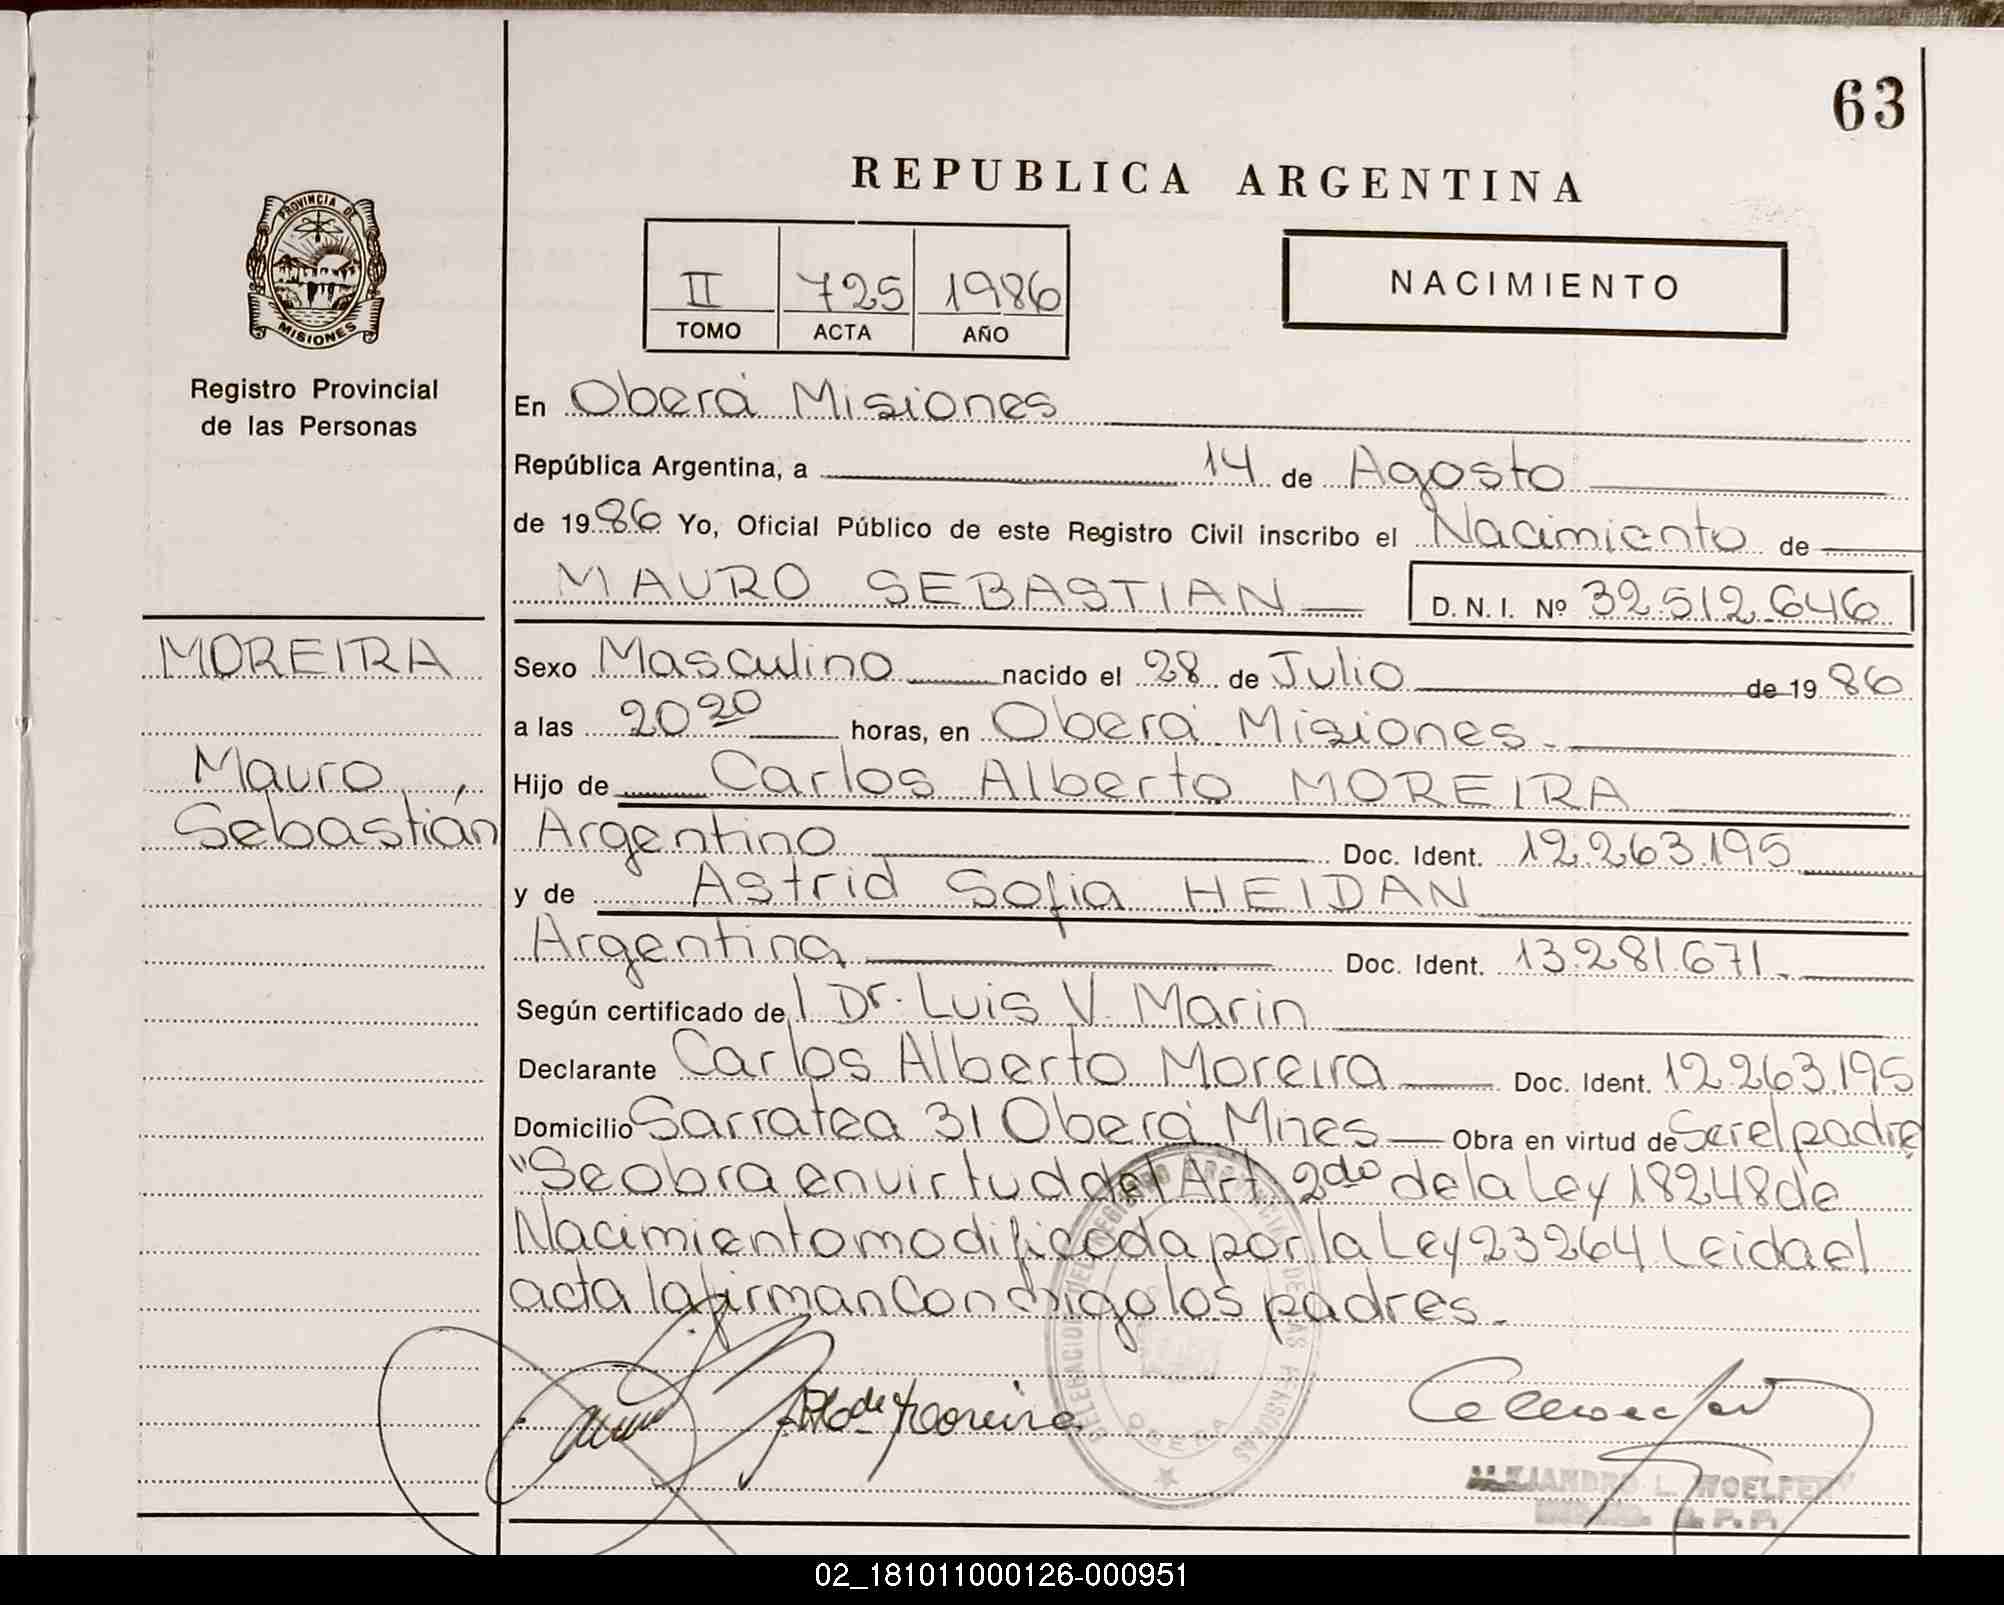 63
REPUBLICA ARGENTINA
PROVINCIA DE
MISIONES
Registro Provincial
de las Personas
II 725 1986
TOMO ACTA AÑO
NACIMIENTO
En Oberá Misiones
República Argentina, a 14 de Agosto
de 1986 Yo, Oficial Público de este Registro Civil inscribo el Nacimiento de
MAURO SEBASTIAN D.N.I. Nº 32.512.646
MOREIRA
Mauro
Sebastián
Sexo Masculino nacido el 28 de Julio de 19 86
a las 20 20 horas, en Oberá Misiones.
Hijo de Carlos Alberto MOREIRA
Argentino Doc. Ident. 12.263.195
y de Astrid Sofia HEIDAN
Argentina Doc. Ident. 13.281.671.
Según certificado de l Dr. Luis V. Marin
Declarante Carlos Alberto Moreira Doc. Ident. 12.263.195
Domicilio Sarratea 31 Oberá Mnes Obra en virtud de Ser el padre
"Se obra en virtud del Art. 2do de la Ley 18248 de
Nacimiento modificada por la Ley 23264 Leida el
acta la firman Conmigo los padres.
de Moreira
DELEGACION DEL REGISTRO PROVINCIAL DE LAS PERSONAS
OBERA
ALEJANDRO L.
02_181011000126-000951